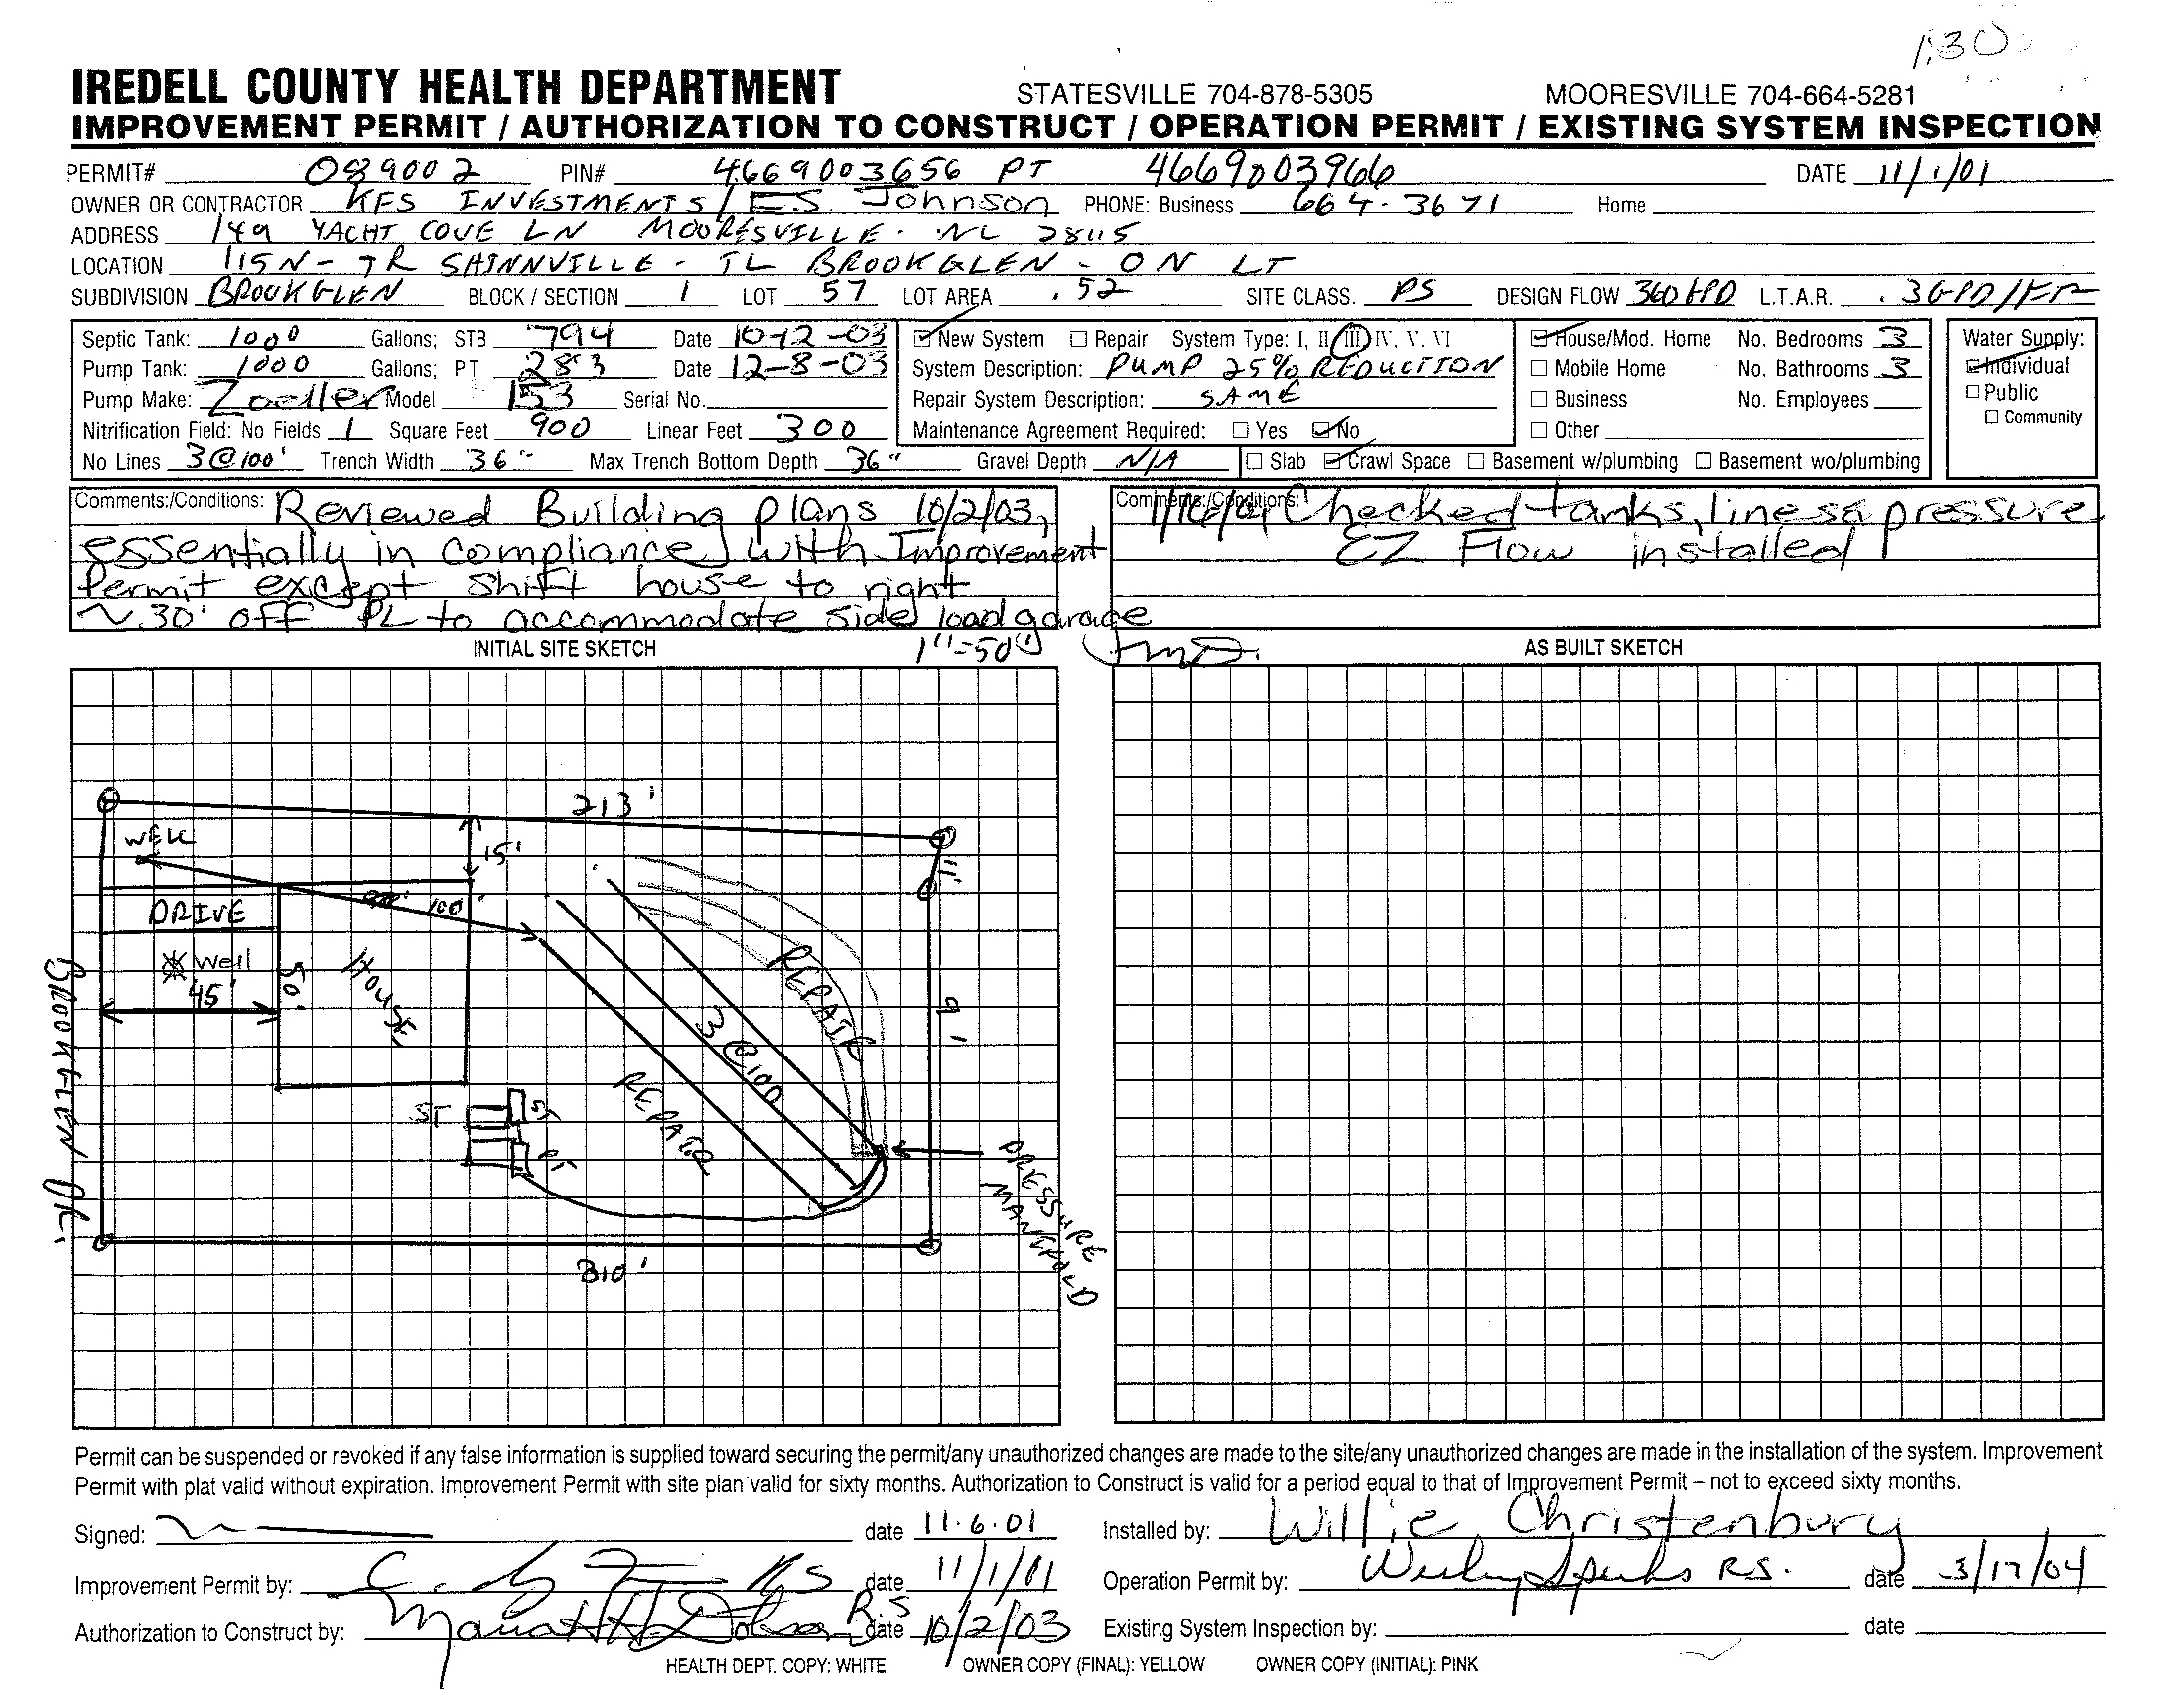 1:30
IREDELL COUNTY HEALTH DEPARTMENT STATESVILLE 704-878-5305 MOORESVILLE 704-664-5281
IMPROVEMENT PERMIT / AUTHORIZATION TO CONSTRUCT / OPERATION PERMIT / EXISTING SYSTEM INSPECTION
PERMIT# 089002 PIN# 4669003656 PT 4669003966 DATE 11/1/01
OWNER OR CONTRACTOR KFS INVESTMENTS / ES Johnson PHONE: Business 664-3671 Home
ADDRESS 149 YACHT COVE LN MOORESVILLE. NC 28115
LOCATION 115N - TR SHINNVILLE - TL BROOKGLEN - ON LT
SUBDIVISION BROOKGLEN BLOCK / SECTION 1 LOT 57 LOT AREA .52 SITE CLASS. PS DESIGN FLOW 360 GPD L.T.A.R. .3GPD/FT²
Septic Tank: 1000 Gallons; STB 794 Date 10-12-03 New System Repair System Type: I, II, III, IV, V, VI House/Mod. Home No. Bedrooms 3 Water Supply:
Pump Tank: 1000 Gallons; PT 283 Date 12-8-03 System Description: PUMP 25% REDUCTION Mobile Home No. Bathrooms 3 Individual
Pump Make: Zoeller Model 153 Serial No. Repair System Description: SAME Business No. Employees Public
Nitrification Field: No Fields 1 Square Feet 900 Linear Feet 300 Maintenance Agreement Required: Yes No Other Community
No Lines 3@100' Trench Width 36" Max Trench Bottom Depth 36" Gravel Depth N/A Slab Crawl Space Basement w/plumbing Basement wo/plumbing
Comments:/Conditions: Reviewed Building plans 10/2/03,
essentially in compliance with Improvement
Permit except shift house to right
~30' off PL to accommodate side load garage
Comments:/Conditions: 1/16/04 Checked tanks, lines & pressure
EZ Flow installed
INITIAL SITE SKETCH 1"=50' AS BUILT SKETCH
213'
WELL
15'
11'
100'
DRIVE
Well
45'
50'
HOUSE
REPAIR
3@100
91'
REPAIR
ST
ST
PT
PRESSURE
MANIFOLD
BROOKGLEN DR.
310'
Permit can be suspended or revoked if any false information is supplied toward securing the permit/any unauthorized changes are made to the site/any unauthorized changes are made in the installation of the system. Improvement
Permit with plat valid without expiration. Improvement Permit with site plan valid for sixty months. Authorization to Construct is valid for a period equal to that of Improvement Permit – not to exceed sixty months.
Signed: date 11.6.01 Installed by: Willie Christenbury
Improvement Permit by: RS date 11/1/01 Operation Permit by: Wesley Sparks R.S. date 3/17/04
Authorization to Construct by: R.S date 10/2/03 Existing System Inspection by: date
HEALTH DEPT. COPY: WHITE OWNER COPY (FINAL): YELLOW OWNER COPY (INITIAL): PINK